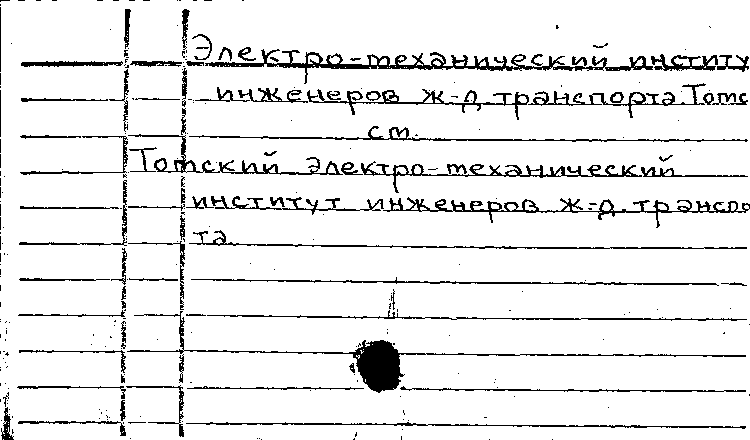 Электро-механический институ
инженеров ж-д транспорта. Томс
см.
Томский электро-механический
институт инженеров ж-д. транспо
та.